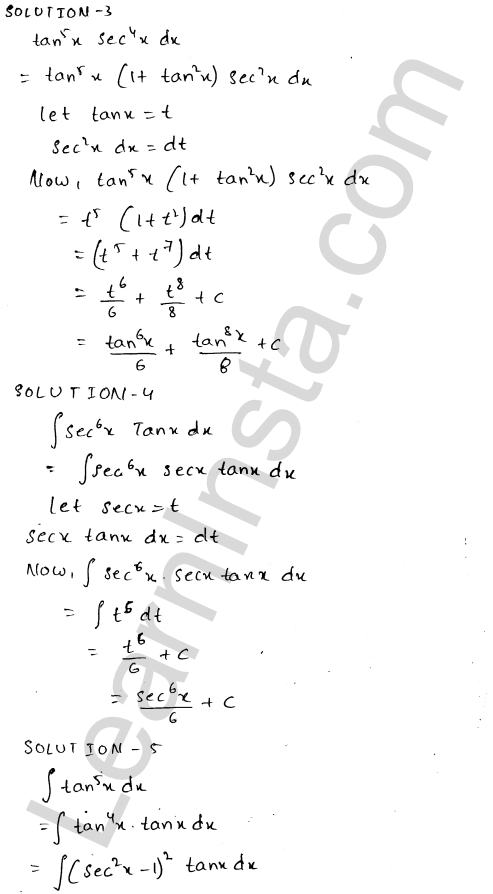 SOLUTION-3
tan⁵x sec⁴x dx
= tan⁵x (1+ tan²x) sec²x dx
let tanx = t
sec²x dx = dt
Now, tan⁵x (1+ tan²x) sec²x dx
= t⁵ (1+t²)dt
= (t⁵ + t⁷) dt
= t⁶/6 + t⁸/8 + c
= tan⁶x/6 + tan⁸x/8 + c
SOLUTION-4
∫sec⁶x Tanx dx
= ∫sec⁶x secx tanx dx
let secx = t
secx tanx dx = dt
Now, ∫ sec⁶x. secx tanx dx
= ∫ t⁵ dt
= t⁶/6 + c
= sec⁶x/6 + c
SOLUTION - 5
∫tan⁵x dx
= ∫ tan⁴x . tanx dx
= ∫(sec²x -1)² tanx dx
LearnInsta.com